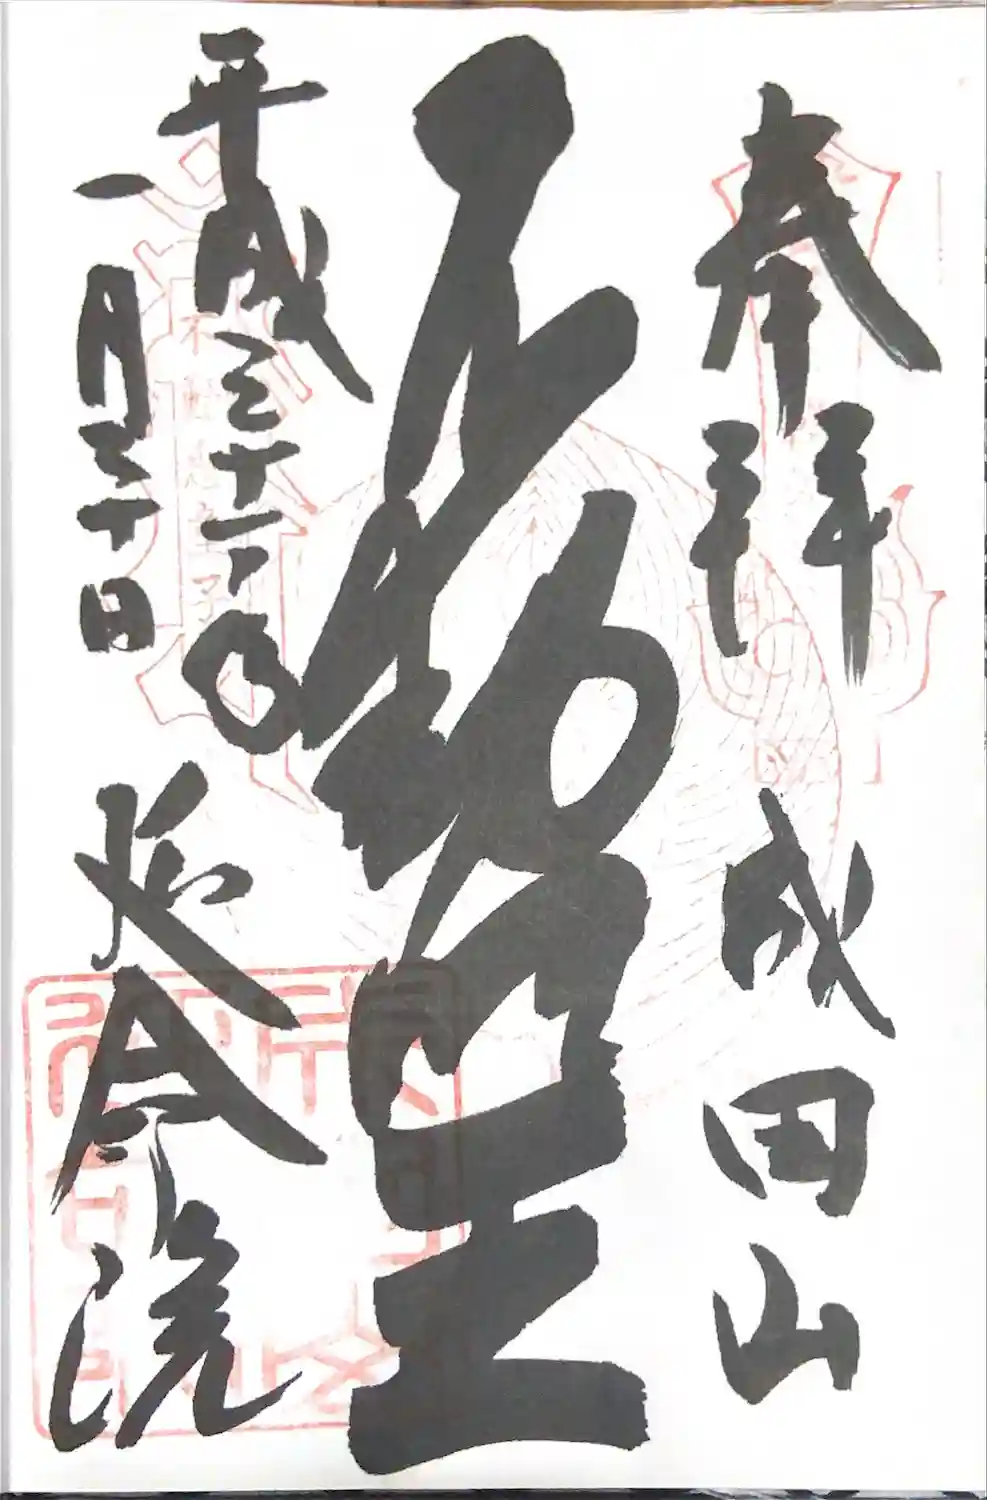 奉拝 成田山
不動明王
平成三十一年
一月三十日 延命院